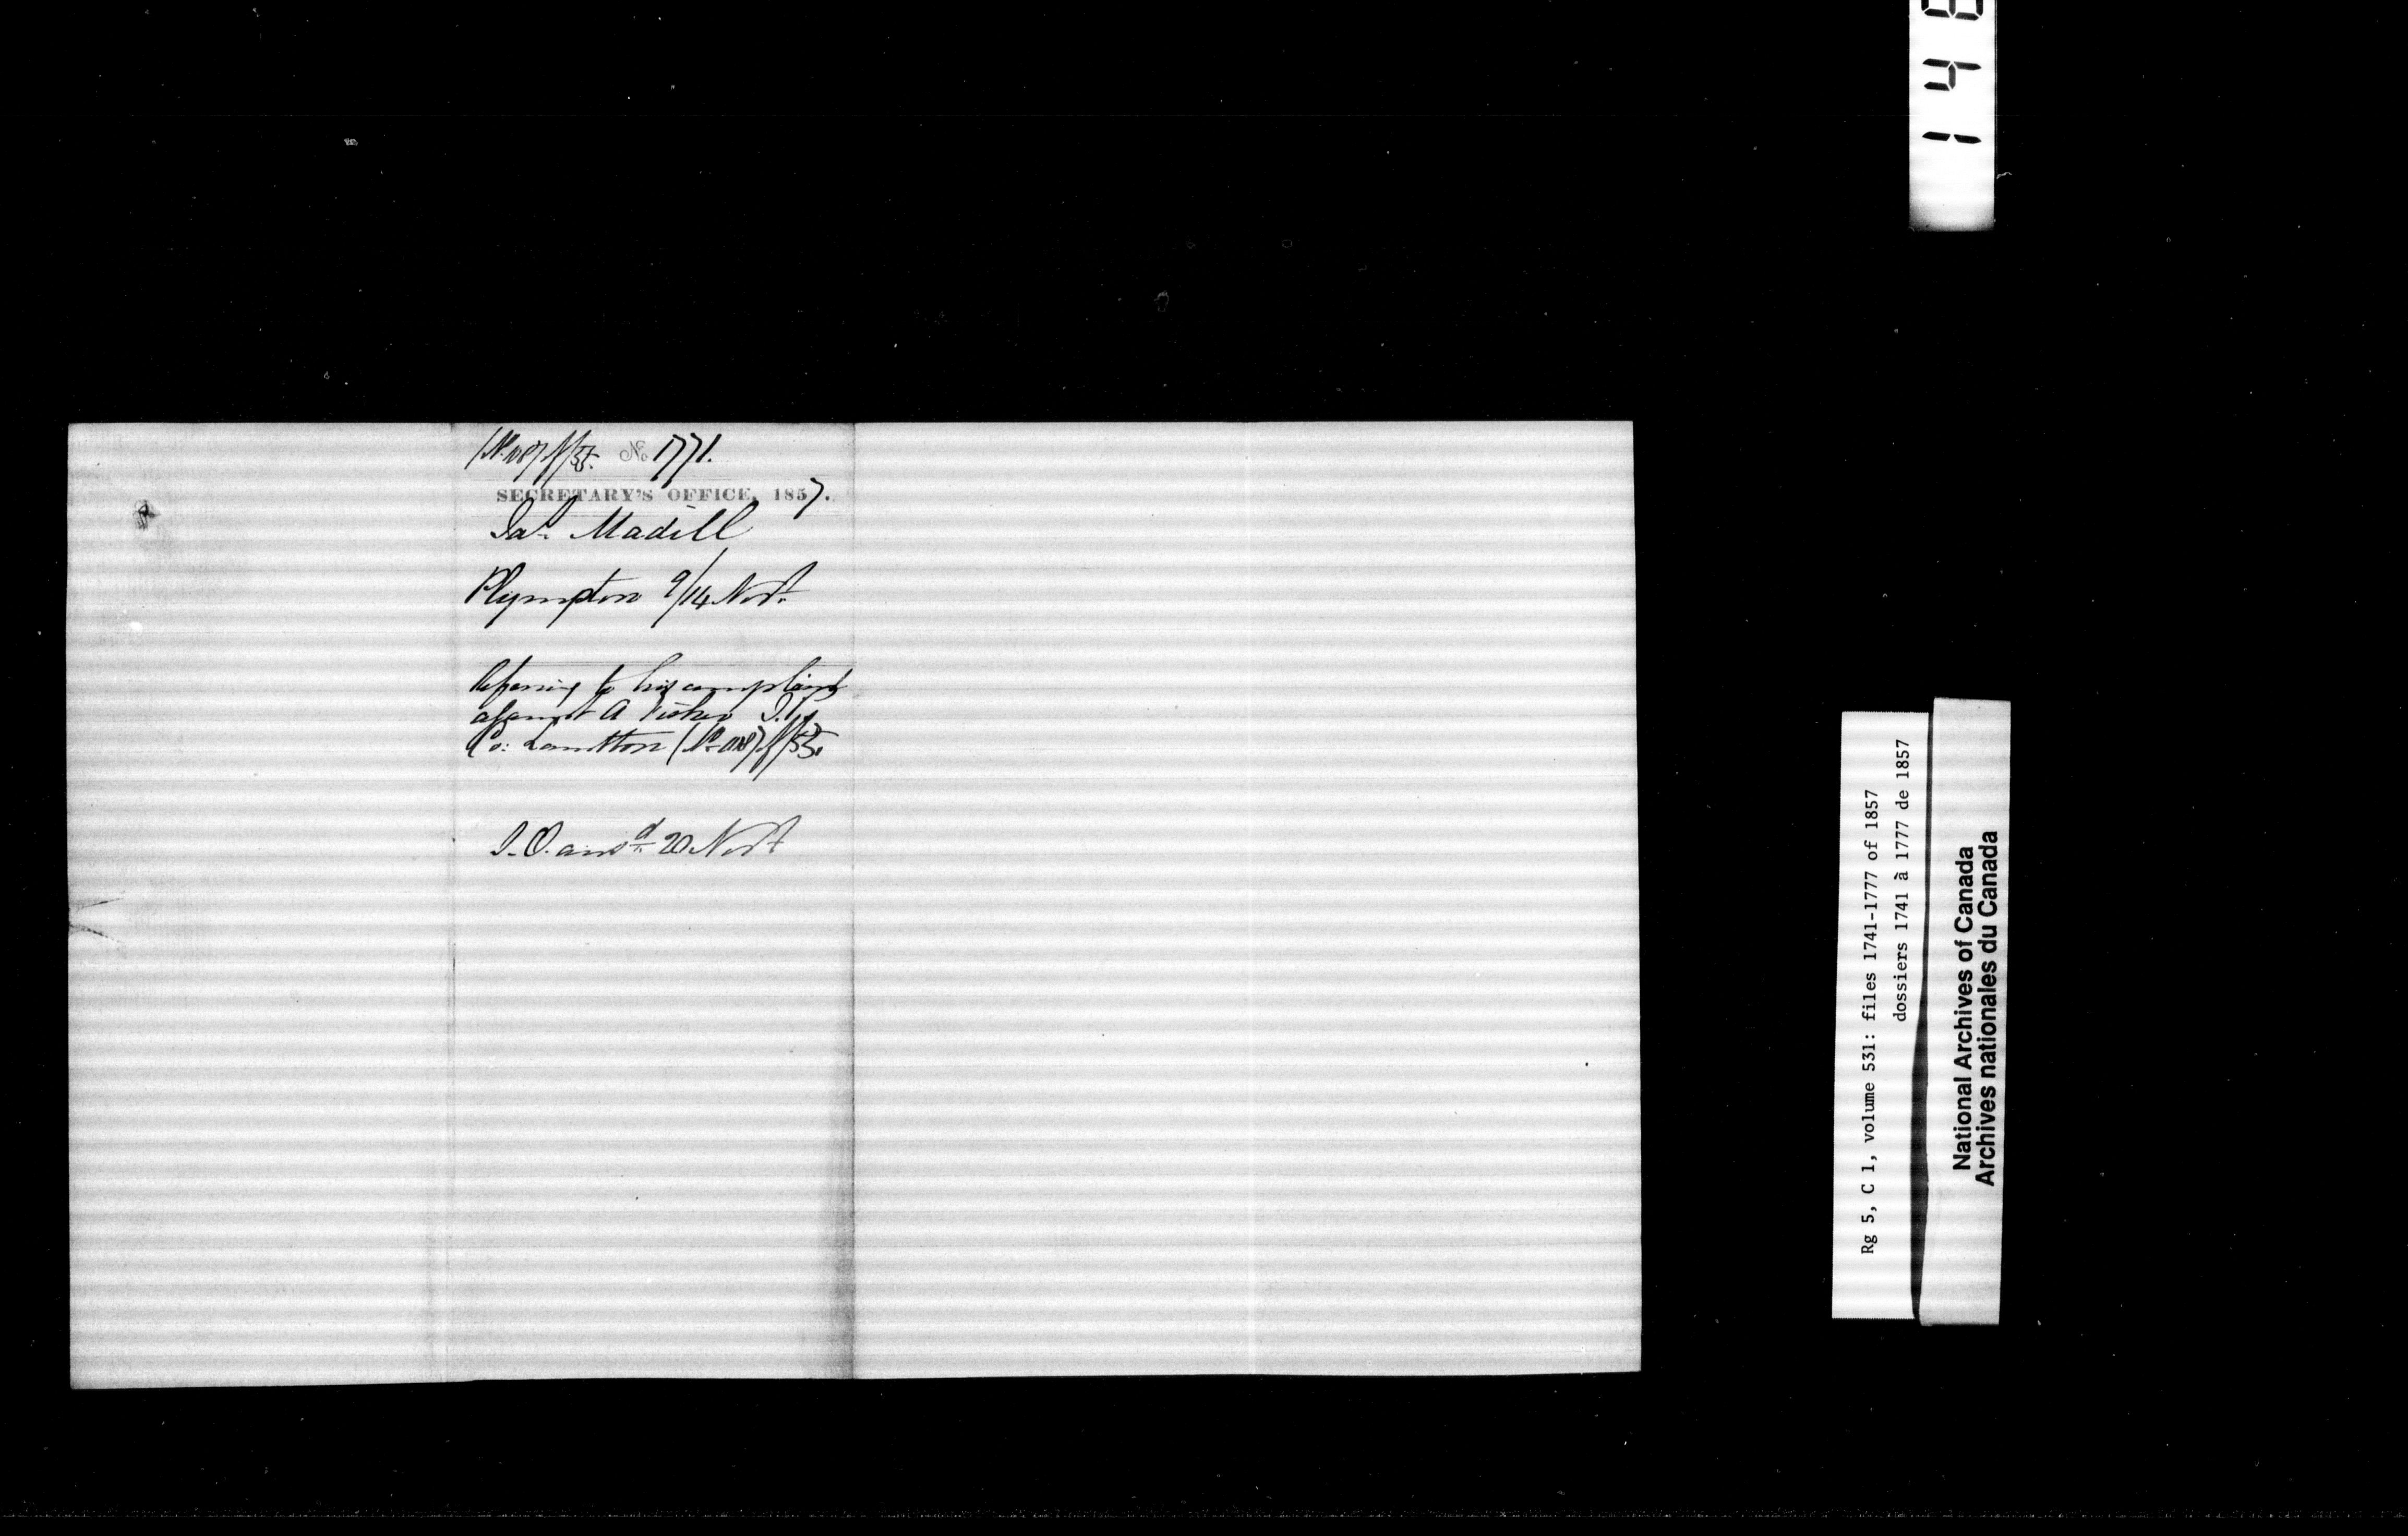 No 1771.
SECRETARY'S OFFICE, 1857.
Jas. Madill
Plympton 9/14 Novr.
Referring to his complaint
against A Fisher J.P.
Co: Lambton
S.O. ansd. 20 Novr
148
Rg 5, C 1, volume 531: files 1741-1777 of 1857
dossiers 1741 à 1777 de 1857
National Archives of Canada
Archives nationales du Canada